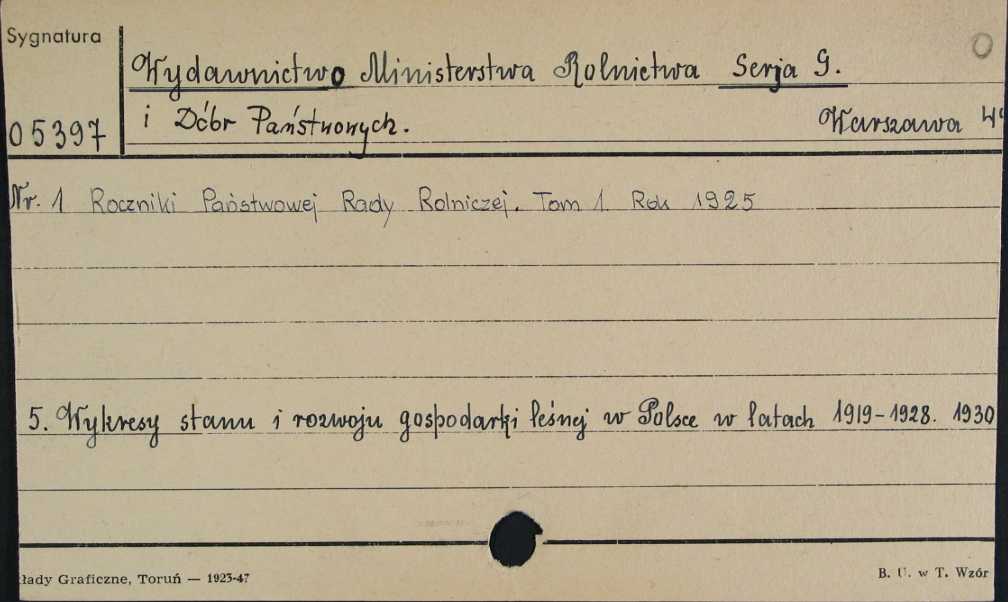 Sygnatura
Wydawnictwo Ministerstwa Rolnictwa Serja G.
05397
i Dóbr Państwowych. Warszawa
Nr. 1 Roczniki Państwowej Rady Rolniczej. Tom 1. Rok 1925
5. Wykresy stanu i rozwoju gospodarki leśnej w Polsce w latach 1919-1928. 1930
łady Graficzne, Toruń — 1923-47
B. U. w T. Wzór